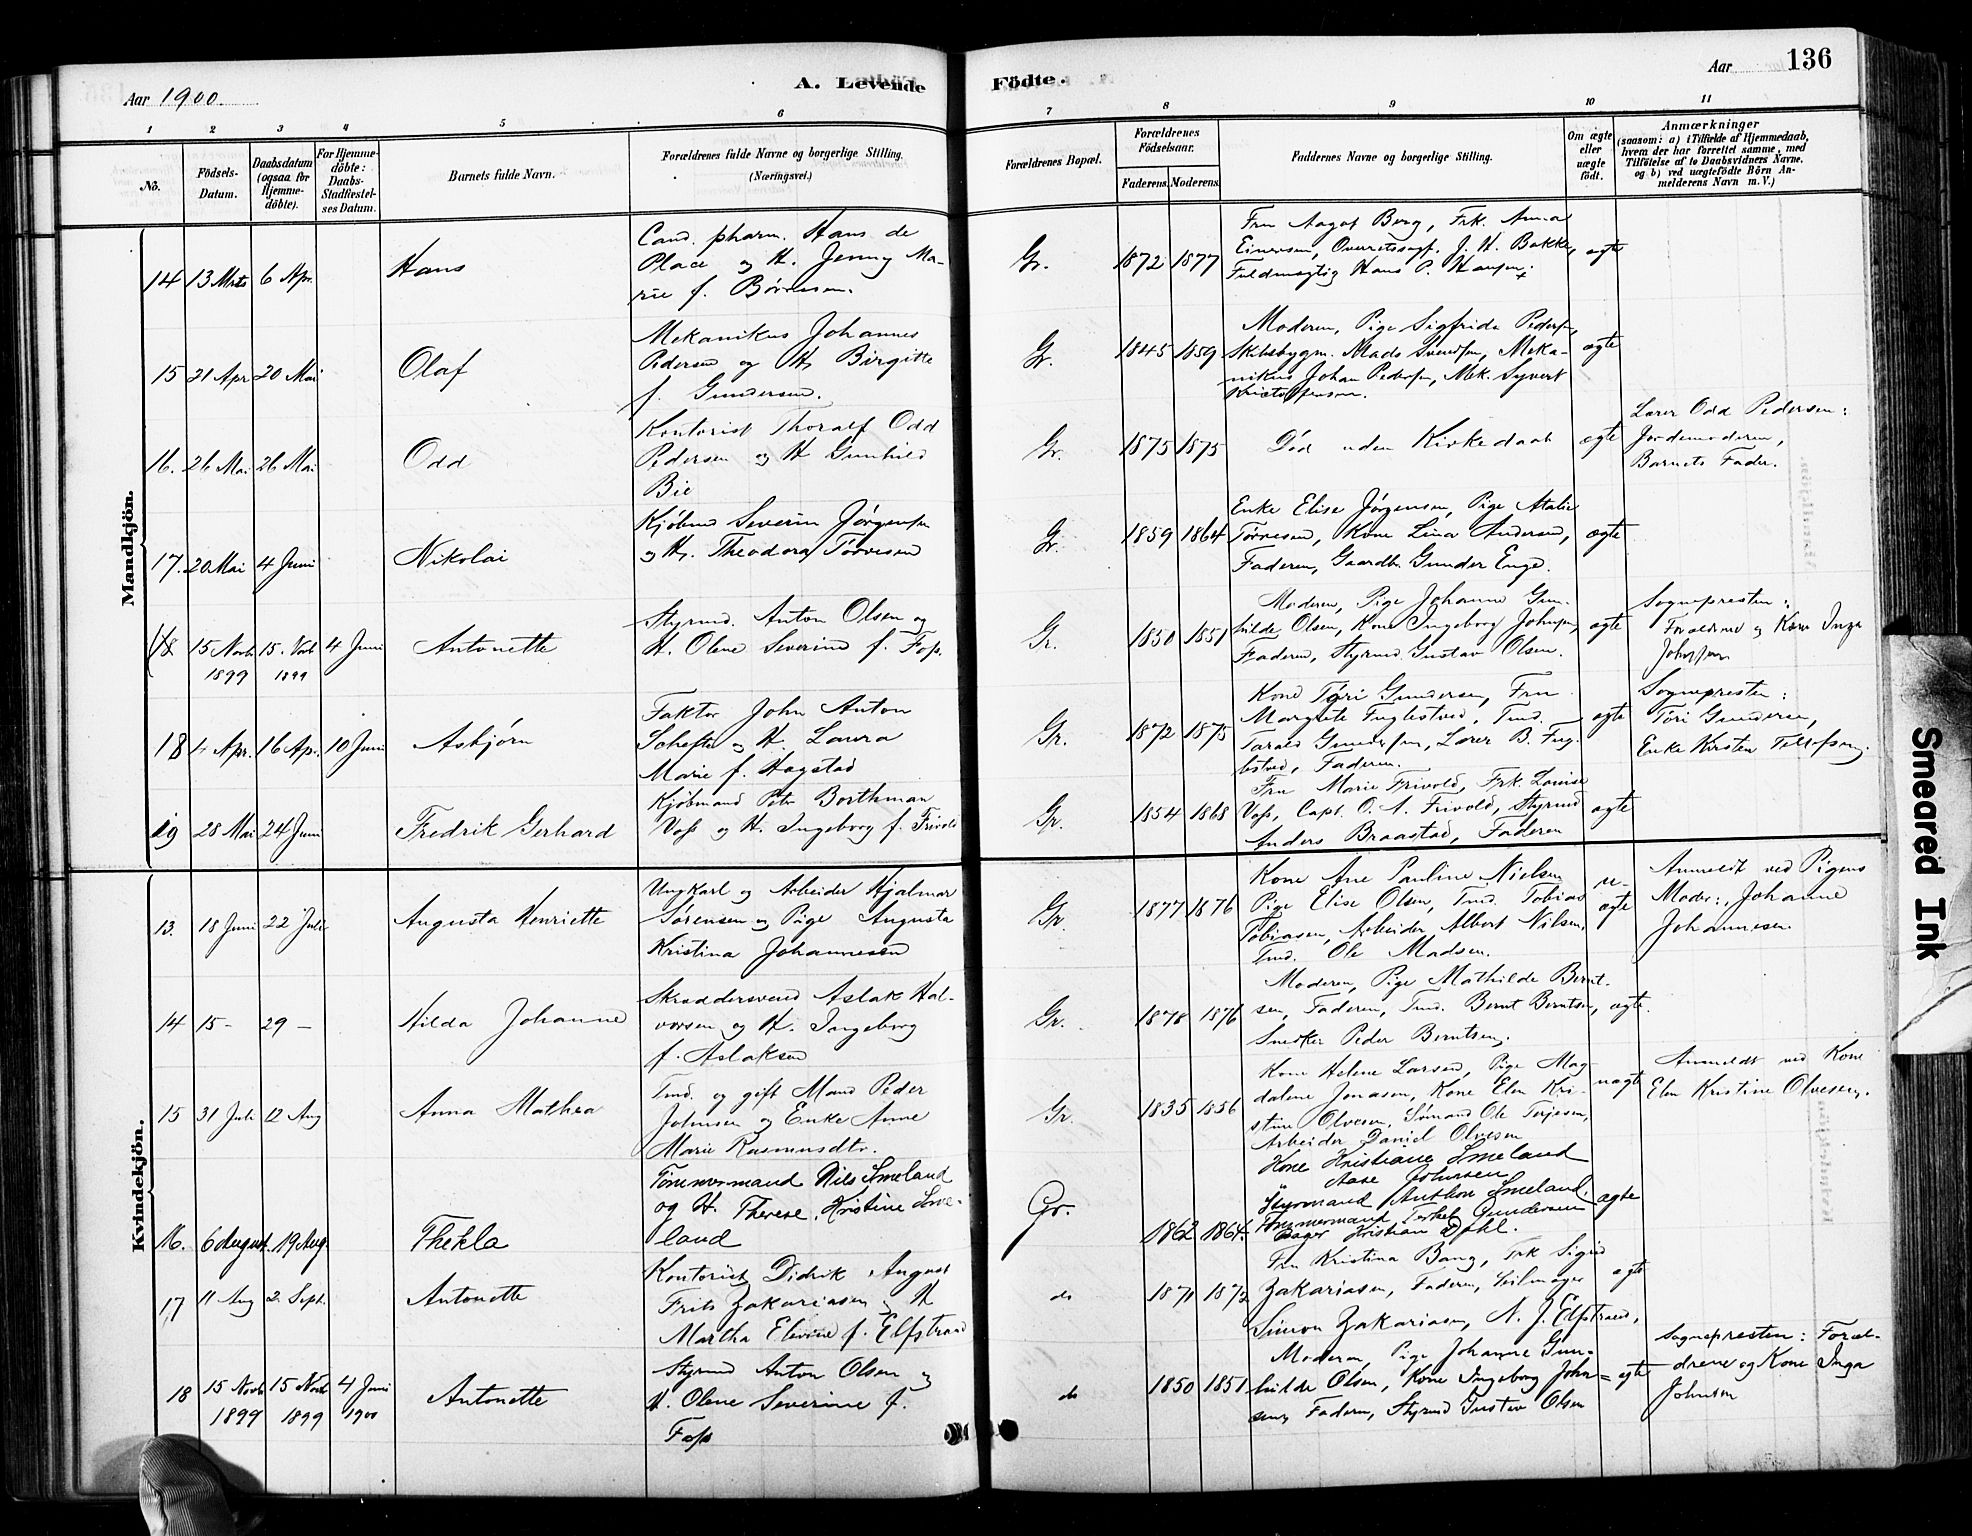 Aar 1900.
A. Levende
Födte.
Aar
136
1
2
3
4
5
6
7
8
9
10
11
No.
Födsels-
Datum.
Daabsdatum
(ogsaa for
Hjemme-
döbte).
For Hjemme-
döbte:
Daabs-
Stadfæstel-
ses Datum.
Barnets fulde Navn.
Forældrenes fulde Navne og borgerlige Stilling.
(Næringsvei.)
Forældrenes Bopæl.
Forældrenes
Födselsaar.
Faderens.
Moderens.
Faddernes Navne og borgerlige Stilling.
Om ægte
eller
uægte
født.
Anmærkninger
(saasom: a) i Tilfælde af Hjemmedaab,
hvem der har forrettet samme, med
Tilföielse af to Daabsvidners Navne,
og b) ved uægtefödte Börn An-
melderens Navn m. V.)
Mandkjön.
14
13 Mrts
6 Apr.
Hans
Cand. pharm. Hans de
Place og H. Jenny Ma-
rie f. Børresen.
Gr.
1872
1877
Fru Aagot Berg, Frk. Anna
Einersen, Overretssagf. J. H. Bakke,
Fuldmægtig Hans P. Hansen.
ægte
15
21 Apr
20 Mai
Olaf
Mekanikus Johannes
Pedersen og H. Birgitte
f. Gundersen.
Gr.
1845
1859
Moderen, Pige Sigfride Pedersen,
Skibsbygm. Mads Svendsen, Meka-
nikus Johan Pedersen, Mek. Syvert
Kristophersen.
ægte
16.
26 Mai
26 Mai
Odd
Kontorist Thoralf Odd
Pedersen og H Gunhild
Bie
Gr.
1875
1875
Død uden Kirkedaab
ægte
Lærer Odd Pedersen:
Jordemoderen,
Barnets Fader.
17.
20 Mai
4 Juni
Nikolai
Kjøbmd Severin Jørgensen
og H. Theodora Torvesen
Gr.
1859
1864
Enke Elise Jørgensen, Pige Atalie
Torvesen, Kone Lina Andersen,
Faderen, Gaardbr. Gunder Enge.
ægte
18
15 Novb
1899
15. Novb
1899
4 Juni
Antonette
Styrmd. Anton Olsen og
H. Olene Severine f. Foss.
Gr.
1850
1851
Moderen, Pige Johanne Gun-
hilde Olsen, Kone Ingeborg Johnsen,
Faderen, Styrmd. Gustav Olsen.
ægte
Sognepresten:
Forældrene og Kone Inga
Johnsen
18
4 Apr.
16 Ap.
10 Juni
Asbjørn
Faktor John Anton
Schefte og H. Laura
Marie f. Hagstad
Gr.
1872
1875
Kone Tøri Gundersen, Fru
Margrete Fuglestved, Tmd.
Tarald Gundersen, Lærer B. Fug-
lestved, Faderen.
ægte
Sognepresten:
Tøri Gundersen,
Enke Kirsten Tellefsen.
19
28 Mai
24 Juni
Fredrik Gerhard
Kjøbmand Peter Borthman
Voss og H. Ingeborg f. Frivold
Gr.
1854
1868
Fru Marie Frivold, Frk. Louise
Voss, Capt. O. A. Frivold, Styrmd
Anders Braastad, Faderen
ægte
Kvindekjön.
13.
18 Juni
22 Juli
Augusta Henriette
Ungkarl og Arbeider Hjalmar
Sørensen og Pige Augusta
Kristina Johannesen
Gr.
1877
1876
Kone Ane Pauline Nielsen
Pige Elise Olsen, Tmd. Tobias
Tobiasen, Arbeider Albert Nilsen,
Tmd. Ole Madsen.
u-
ægte
Anmeldt ved Pigens
Moder: Johanne
Johannesen
14
15 -
29 -
Hilda Johanne
Skræddersvend Aslak Hal-
vorsen og H. Ingeborg
f. Aslaksen
Gr.
1878
1876
Moderen, Pige Mathilde Bernt-
sen, Faderen, Tmd. Bernt Berntsen,
Snedker Peder Berntsen.
ægte.
15
31 Juli
12 Aug
Anna Mathea
Tmd. og gift Mand Peder
Johnsen og Enke Anne
Marie Rasmusdtr.
Gr.
1835
1856
Kone Helene Larsen, Pige Mag-
dalene Jonasen, Kone Elen Kri-
stine Olvesen, Sömand Ole Terjesen,
Arbeider Daniel Olvesen
uægte
Anmeldt ved Kone
Elen Kristine Olvesen.
16.
6 August.
19 Aug.
Thekla
Tömmermand Nils Smeland
og H. Therese, Kristine Sme-
land
Gr.
1862
1864.
Kone Kristiane Smeland
Aase Johnsen
Styrmand Anthon Smeland,
Tömmermand Terkel Gundersen
Bager Kristian Dahl.
ægte
17
11 Aug
2. Sept.
Antonette
Kontorist Didrik August
Frits Zakariasen og H
Martha Elevine f. Elfstrand
do
1871
1872
Fru Kristina Bang, Frk Sigrid
Zakariasen, Faderen, Seilmager
Simon Zakariasen, N. J. Elfstrand.
ægte
18
15 Novb
1899
15 Novb
1899
4 Juni
1900
Antonette
Styrmd Anton Olsen og
H. Olene Severine f.
Foss
do
1850
1851
Moderen, Pige Johanne Gun-
hilde Olsen, Kone Ingeborg John-
sen, Faderen, Styrmd Gustav Olsen
ægte
Sognepresten: Foræl-
drene og Kone Inga
Johnsen
Smeared Ink